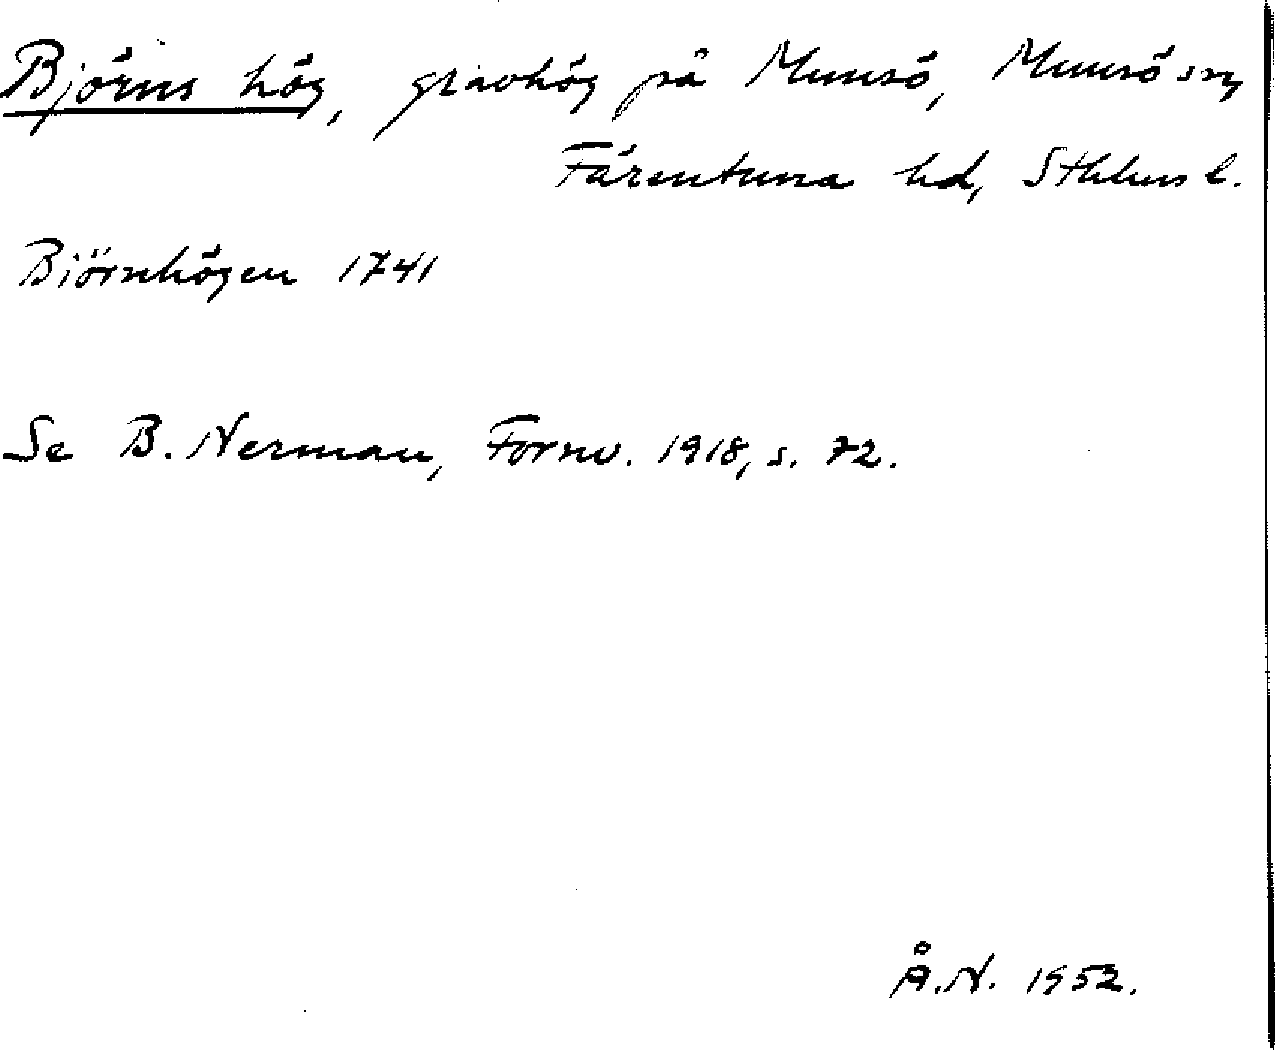 Björns hög, gravhög på Munsö, Munsö sn,
Färentuna hd, Sthlms l.
Biörnhögen 1741
Se B. Nerman, Fornv. 1918, s. 72.
Å.N. 1952.